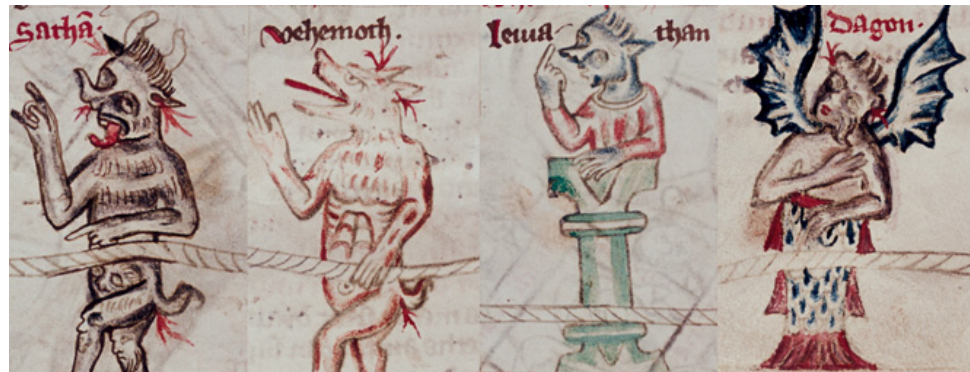 Sathā
vehemoth.
Iewia
than
Dagon.